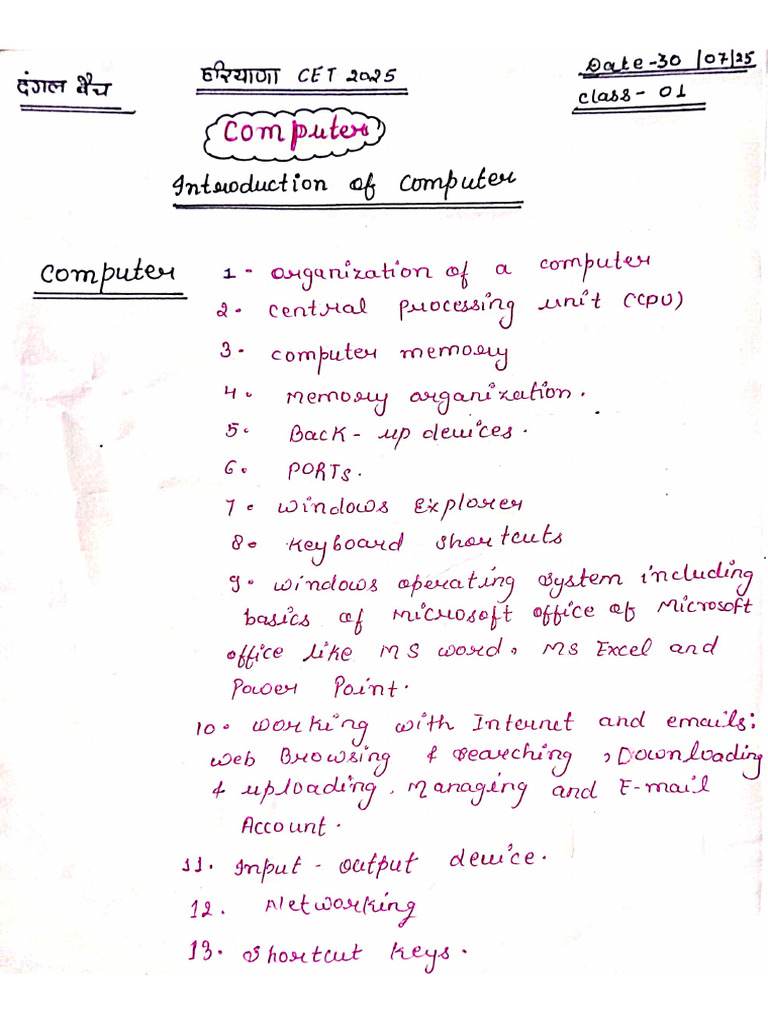 दंगल बैच
हरियाणा CET 2025
Date-30/07/25
Class-01
Computer
Introduction of Computer
Computer
1- organization of a computer
2- central processing unit (CPU)
3- computer memory
4. memory organization.
5. Back-up devices.
6. PORTs.
7. windows Explorer
8. Keyboard shortcuts
9. windows operating system including
basics of Microsoft office of Microsoft
office like MS word, MS Excel and
Power Point.
10. working with Internet and emails:
web Browsing & searching, Downloading
& uploading, Managing and E-mail
Account.
11. Input-output device.
12. Networking
13. Shortcut Keys.